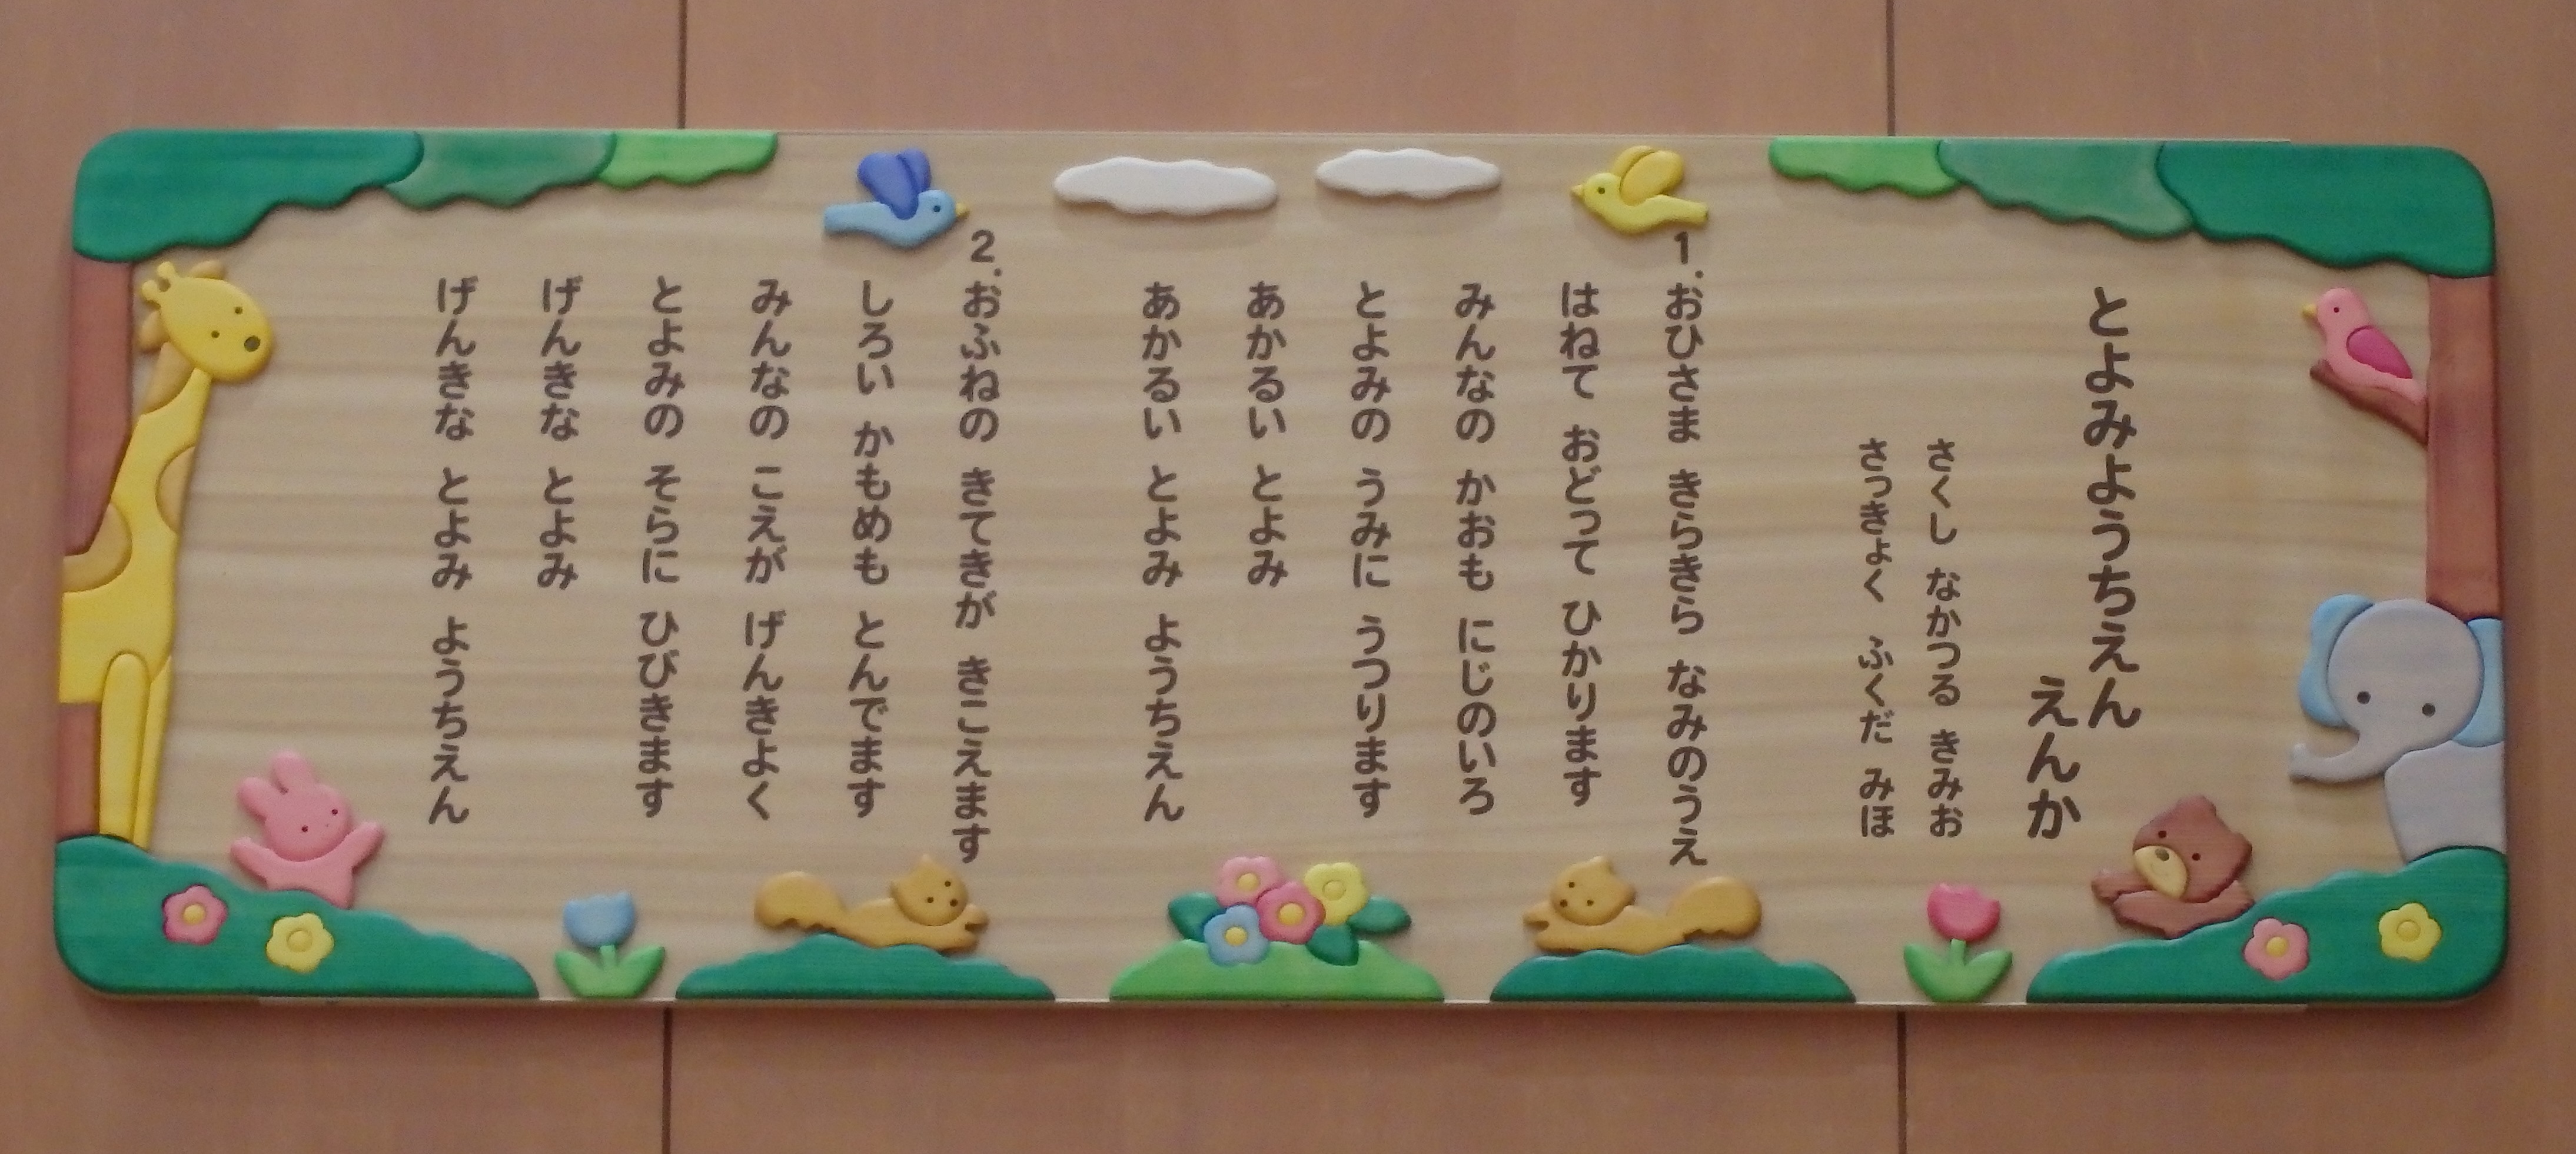 とよみようちえん
えんか
さくし なかつる きみお
さっきょく ふくだ みほ
1.おひさま きらきら なみのうえ
はねて おどって ひかります
みんなの かおも にじのいろ
とよみの うみに うつります
あかるい とよみ
あかるい とよみ ようちえん
2.おふねの きてきが きこえます
しろい かもめも とんでます
みんなの こえが げんきよく
とよみの そらに ひびきます
げんきな とよみ
げんきな とよみ ようちえん